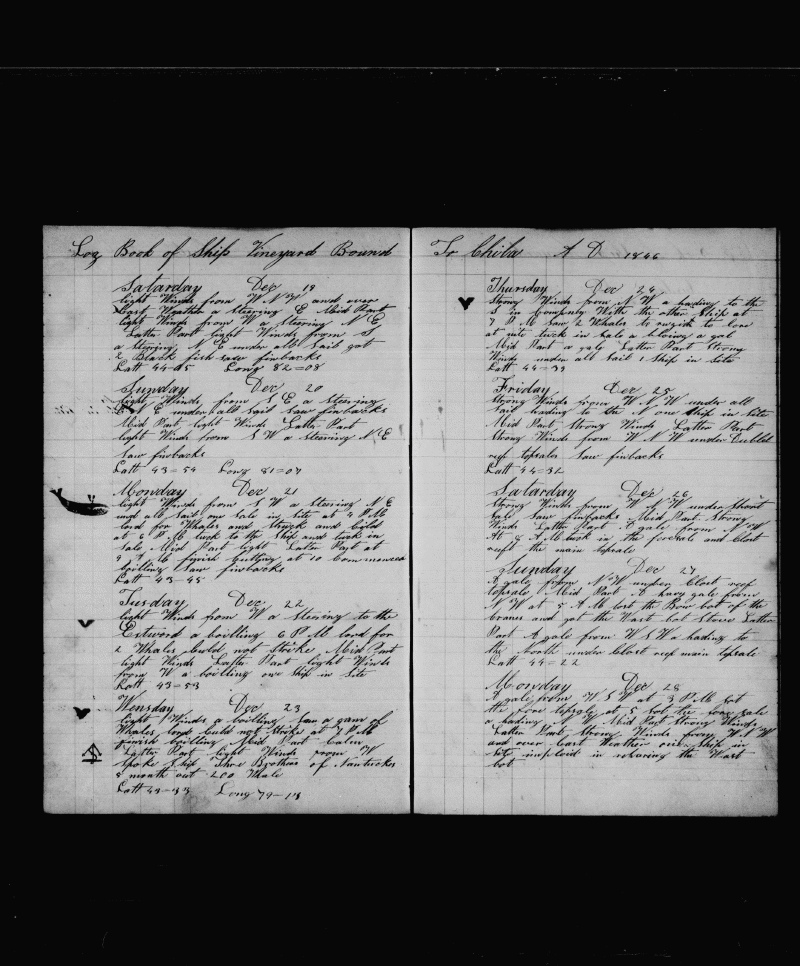 Log Book of Ship Vineyard Bound
Satarday Dec 19
light Winds from W N W and over
Cast Weather a Steering E Mid Part
light Winds from W a Steering N E
Latter Part light Winds from S
a Steering N E under all Sail got
2 Black fish saw finbacks
Latt 44=05 Long 82=08
Sunday Dec 20
light Winds from S E a Steering
N E under all Sail Saw finbacks
Mid Part light Winds Latter Part
light Winds from S W a Steering N E
Saw finbacks
Latt 43=54 Long 81=07
Monday Dec 21
light Winds from S W a Steering N E
under all Sail one Sale in Site at 4 P M
lord for Whales and Struck and kild
at 6 P M tuck to the Ship and tuck in
Sale Mid Part light Latter Part at
9 A M finish Cutting at 10 Commenced
boilling Saw finbacks
Latt 43-45
Tusday Dec 22
light Winds from W a Stering to the
Estword a boilling 6 P M lord for
2 Whales Culd not Strike Mid Part
light Winds Latter Part light Winds
from W a boilling one Ship in Site
Latt 43=53
Wensday Dec 23
light Winds a boilling Saw a gam of
Whales lord Culd not Strike at 7 P M
finish boilling Mid Part Calm
Latter Part light Winds from W
Spoke Ship Thre Brothers of Nantucket
8 month out 200 Whale
Latt 43-33 Long 79-13
To Chila A D 1846
Thursday Dec 24
Strong Winds from N W a hading to the
S in Company With the other Ship at
7 P M Saw 2 Whales to
at nite tuck in Sale a bloing a gale
Mid Part a gale Latter Part Strong
Winds under all Sail 1 Ship in Site
Latt 44=39
Friday Dec 25
Strong Winds from W N W under all
Sail hading to the N one Ship in Site
Mid Part Strong Winds Latter Part
Strong Winds from W N W under Dubbel
reef topsales Saw finbacks
Latt 44=32
Satarday Dec 26
Strong Winds from W N W under Short
Sale Saw finbacks Mid Part Strong
Winds Latter Part A gale from N W
At 9 A M tuck in the foresale and Clost
reeft the main topsale
Sunday Dec 27
A gale from N W under Clost reef
topsale Mid Part A havy gale from
N W at 5 A M lost the Bow bot of the
cranes and got the Wast bot Stove Latter
Part A gale from W S W a hading to
the North under Clost reef main topsale
Latt 44=22
Monday Dec 28
A gale from W S W at 3 P M Set
the fore topsale at 5 Set the fore Sale
a hading N W Mid Part Strong Winds
Latter Part Strong Winds from W N W
and over Cast Weather one Ship in
Site imploid in reparing the Wast
bot